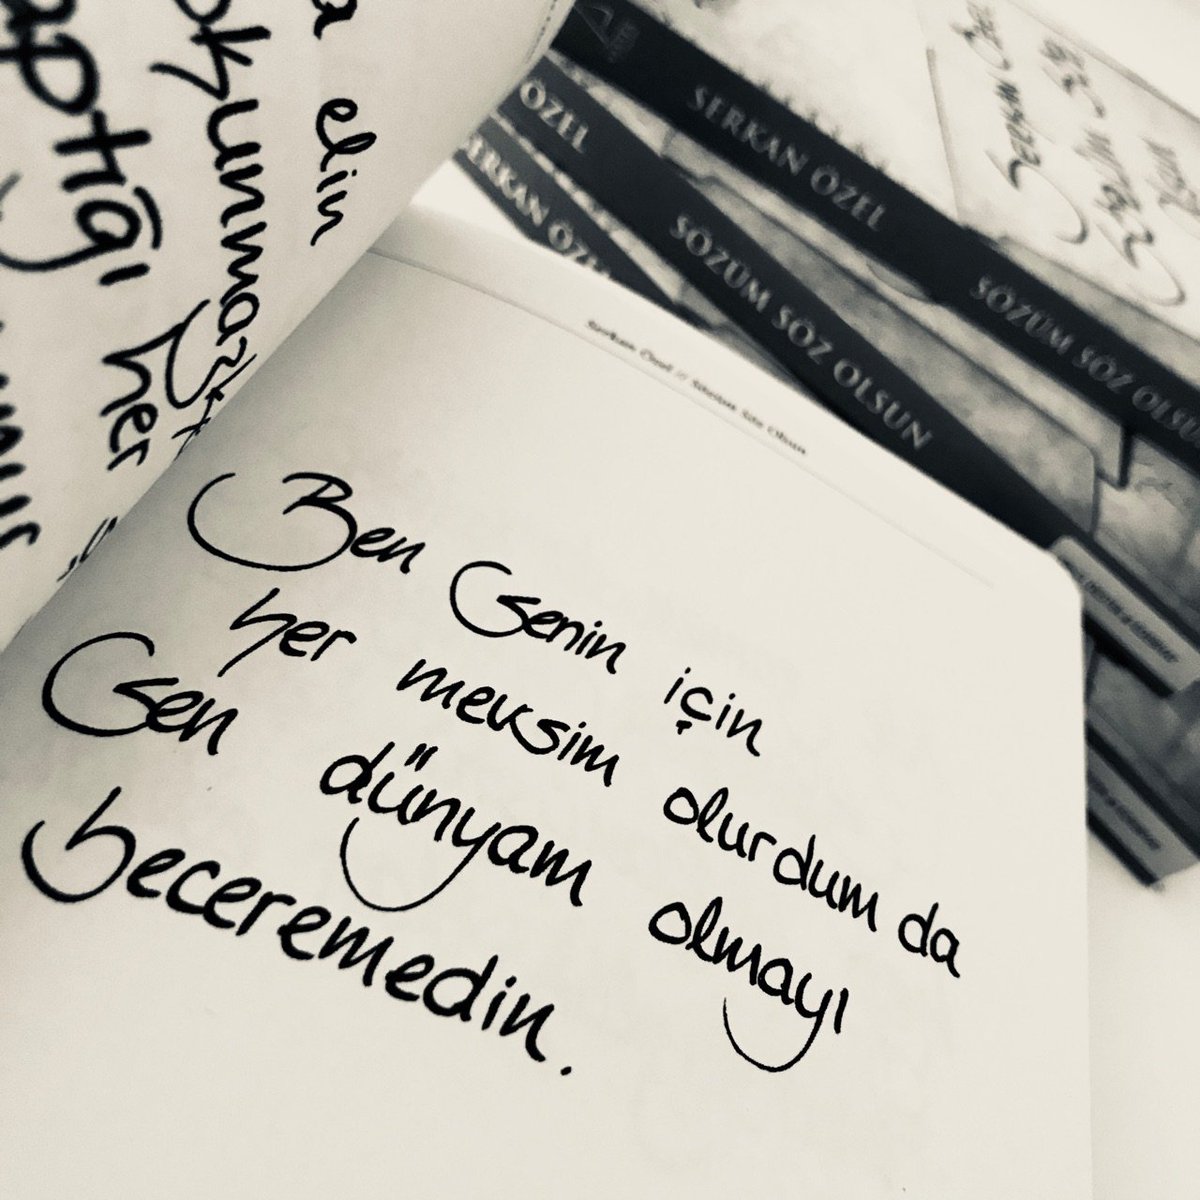 elin
okunmaz
aptığı her
ÖZEL
SERKAN ÖZEL
SERKAN ÖZEL SÖZÜM SÖZ OLSUN
SÖZÜM SÖZ OLSUN
Serkan Özel // Sözüm Söz Olsun
Ben senin için
her mevsim olurdum da
Sen dünyam olmayı
beceremedin.